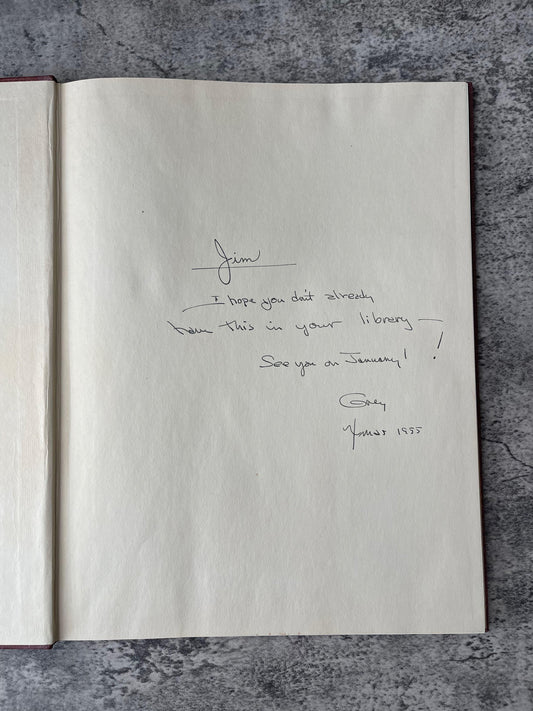 Jim
I hope you don't already
have this in your library —
!
See you on January!
Xmas 1955